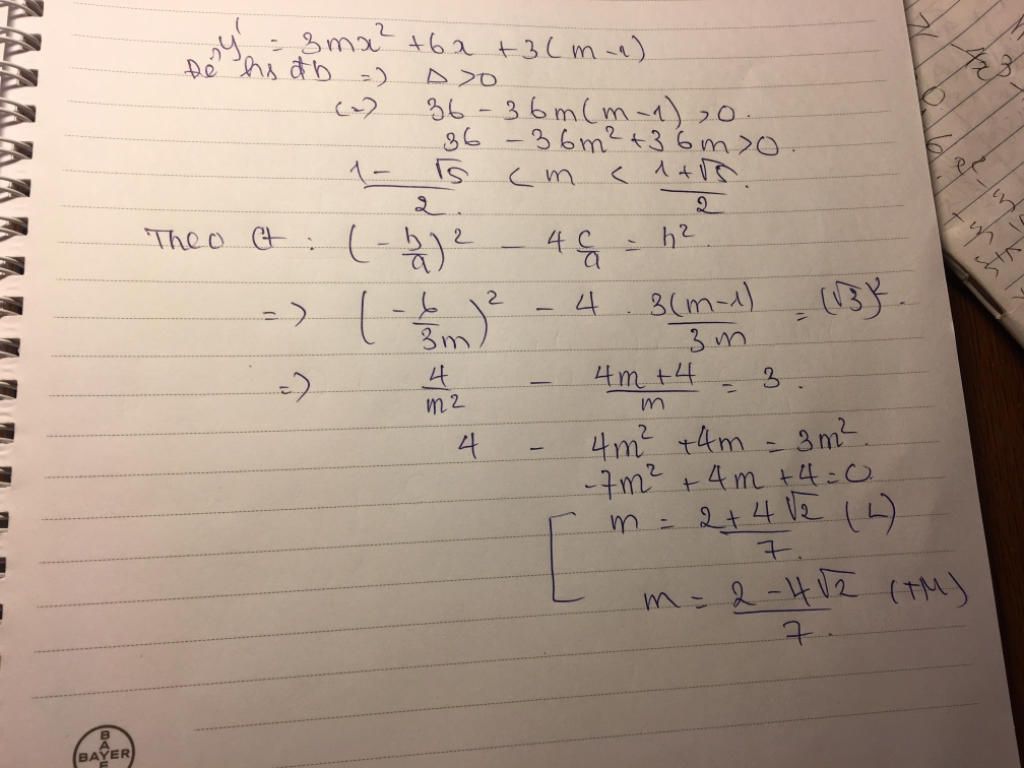 y' = 3mx² + 6x + 3(m-1)
Để hs đb => Δ>0
<=> 36 - 36m(m-1) >0.
36 - 36m² + 36m >0.
(1-√5)/2 < m < (1+√5)/2.
Theo Ct : (-b/a)² - 4 c/a = h².
=> (-6/3m)² - 4 . 3(m-1)/3m = (√3)².
=> 4/m² - (4m+4)/m = 3.
4 - 4m² +4m = 3m².
-7m² + 4m +4=0.
m = (2+4√2)/7. (L)
m = (2-4√2)/7. (TM)
BAYER